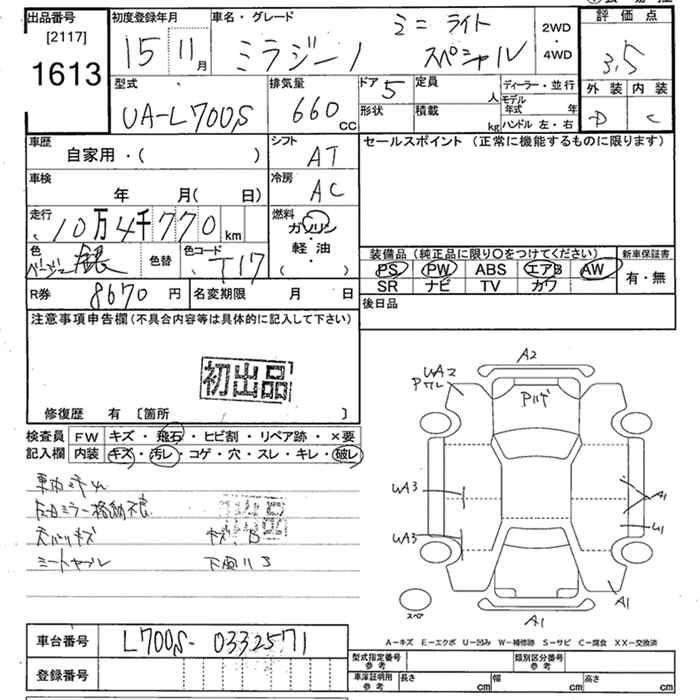 出品番号
[2117]
1613
初度登録年月
15 11月
車名・グレード
ミニ ライト
ミラジーノ スペシャル
2WD
・
4WD
評価点
3.5
外装 内装
D C
型式
UA-L700S
排気量
660 CC
ドア 5
形状
定員
人
積載
kg
ディーラー・並行
モデル年式 年
ハンドル 左・右
車歴
自家用・( )
シフト
AT
セールスポイント (正常に機能するものに限ります)
車検
年 月( 日)
冷房
AC
走行
10万4千770 km
燃料
ガソリン
・
軽油
( )
色
色替
色コード
T17
装備品 (純正品に限り〇をつけてください)
PS PW ABS エアB AW
SR ナビ TV カワ
新車保証書
有・無
R券 8670 円
名変期限 月 日
後日品
注意事項申告欄(不具合内容等は具体的に記入して下さい)
初出品
修復歴 有 [箇所 ]
検査員 FW キズ・飛石・ヒビ割・リペア跡・×要
記入欄 内装 キズ・汚レ・コゲ・穴・スレ・キレ・破レ
A2
UA2
Pワレ
UA3
A1
U1
UA3
A1
スペア
A1
A-キズ E-エクボ U-凹み W-補修跡 S-サビ C-腐食 XX-交換済
車台番号 L700S-0332571
登録番号
型式指定番号
参考
類別区分番号
参考
車庫証明用
参考
長さ cm
幅 cm
高さ cm